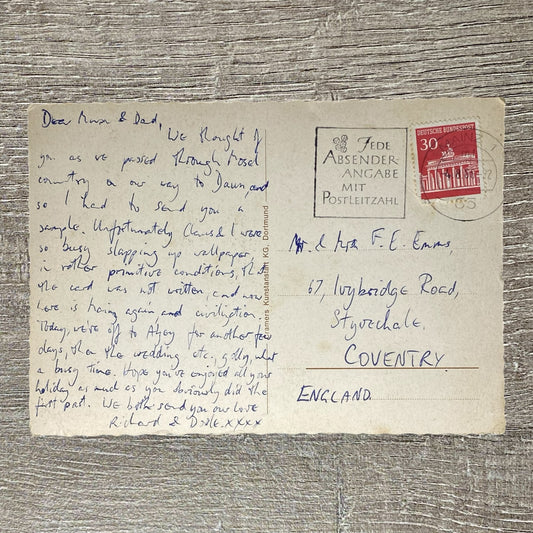 Dear Mum & Dad,
We thought of
you as we passed through Mosel
country on our way to Daun, and
so I had to send you a
sample. Unfortunately Claus & I were
so busy slapping up wallpaper,
in rather primitive conditions, that
the card was not written, and now
here is trying again and civilisation.
Today, we're off to for another few
days, then the wedding etc., golly, what
a busy time. Hope you've enjoyed all your
holiday as much as you obviously did the
first part. We both send you our love
Richard & xxxx
Cramers Kunstanstalt KG. Dortmund
JEDE
ABSENDER-
ANGABE
MIT
POSTLEITZAHL
DEUTSCHE BUNDESPOST
30
Mr. & Mrs F. E. Emms,
67, Ivybridge Road,
Styvechale,
COVENTRY
ENGLAND.